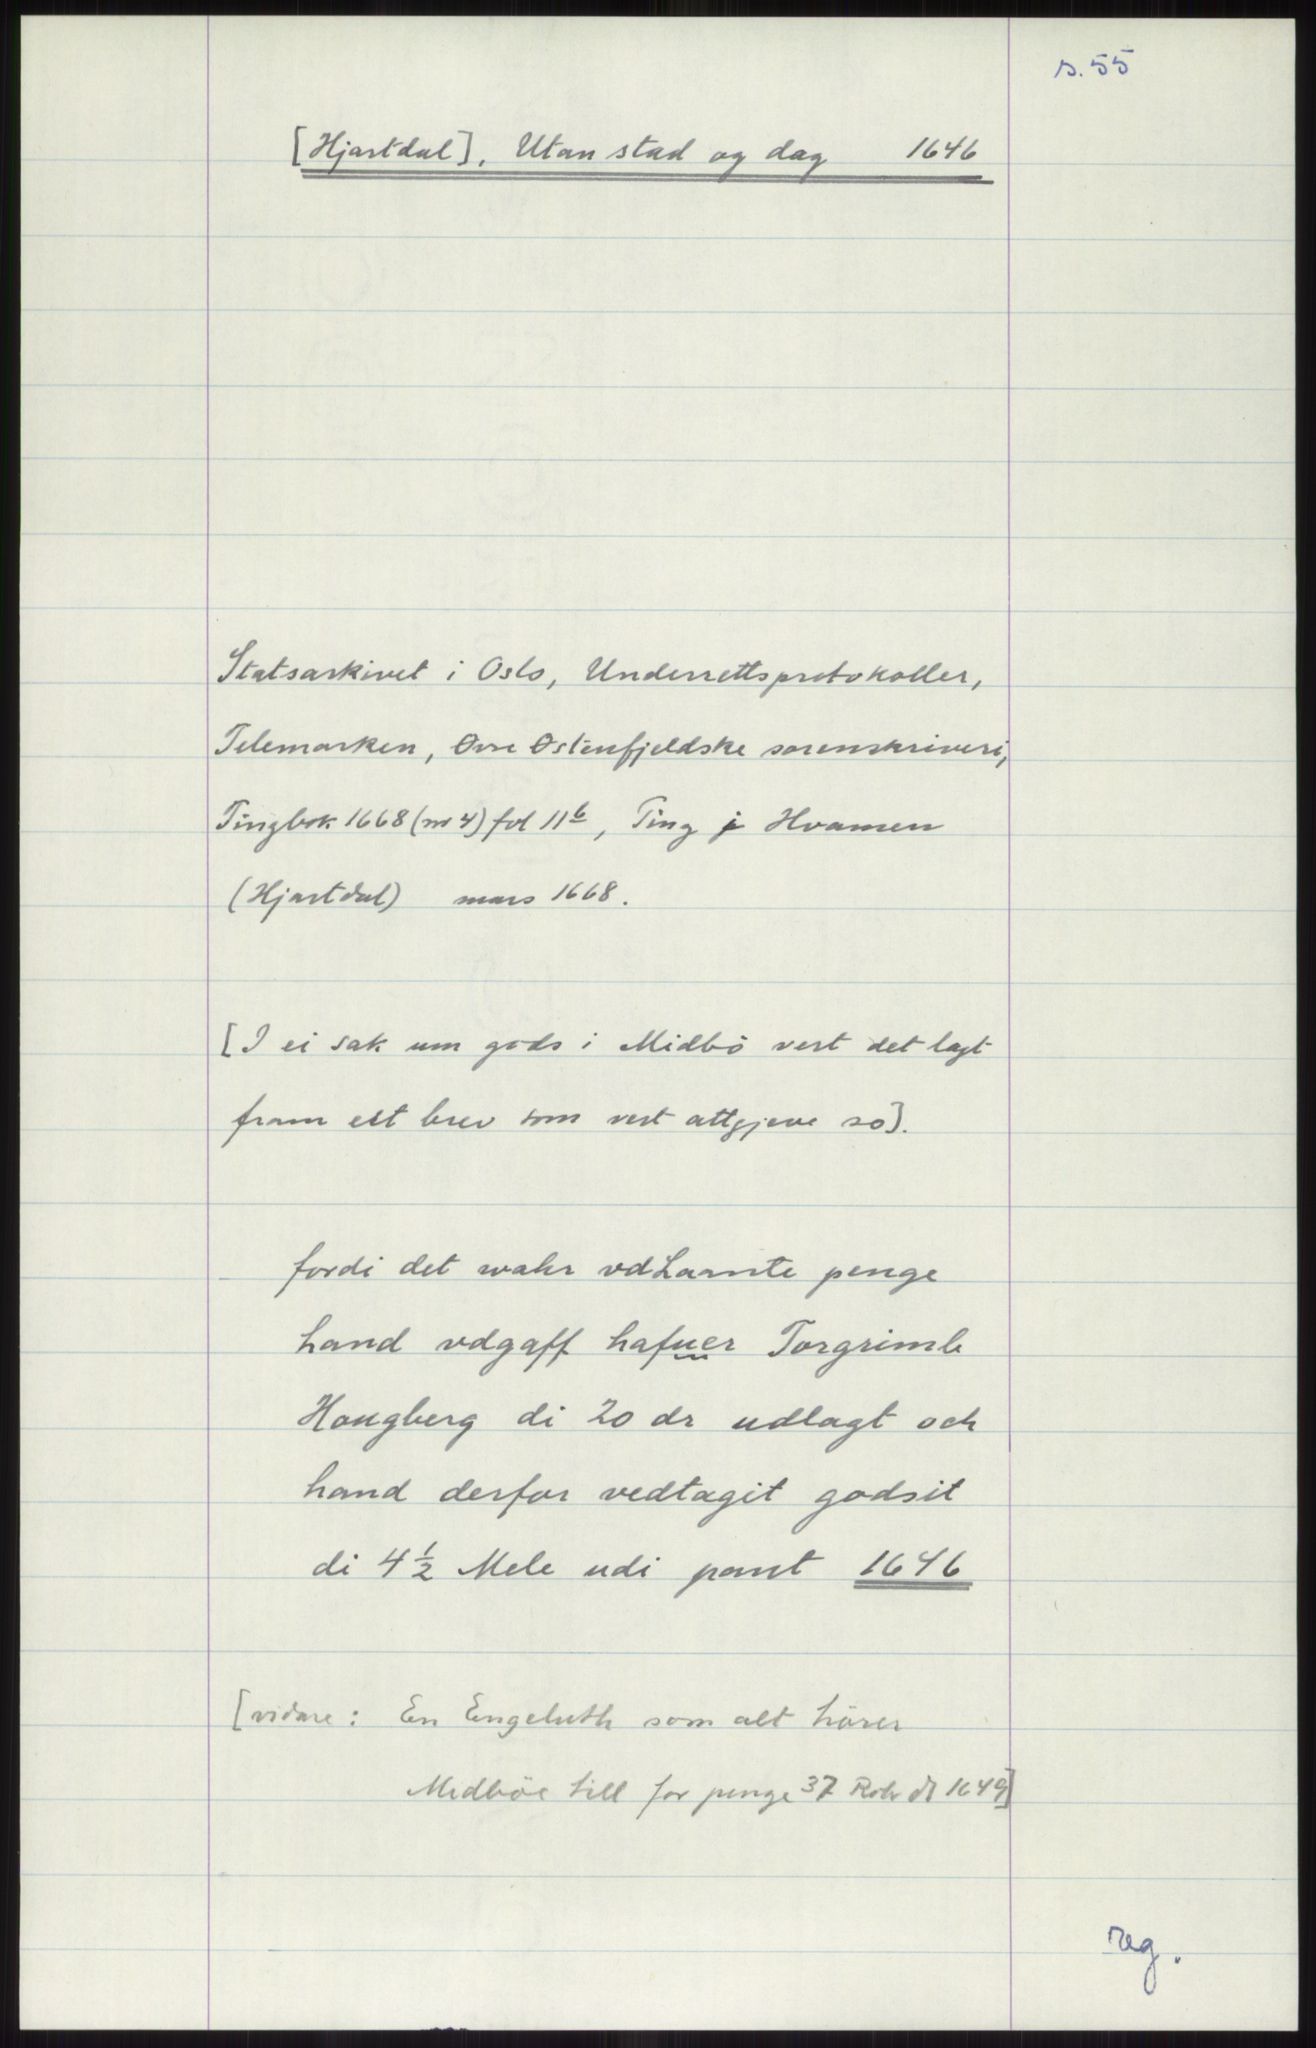 s. 55
[Hjartdal]. Utan stad og dag 1646
Statsarkivet i Oslo, Underrettsprotokoller,
Telemarken, Øvre Østenfjeldske sorenskriveri,
Tingbok 1668 (nr 4) fol 11b, Ting i Hvamen
(Hjartdal) mars 1668.
[I ei sak um gods i Midbö vert det lagt
fram eit brev som vert attgjeve so].
fordi det wahr vdLarnte penge
hand vdgaff hafuer Torgrimb
Hougberg di 20 dr udlagt och
hand derfor vedtagit godsit
di 4 1/2 Mele udi pant 1646
[vidare: En Engeluth som alt hörer
Midböe till for penge 37 dr 1649]
reg.